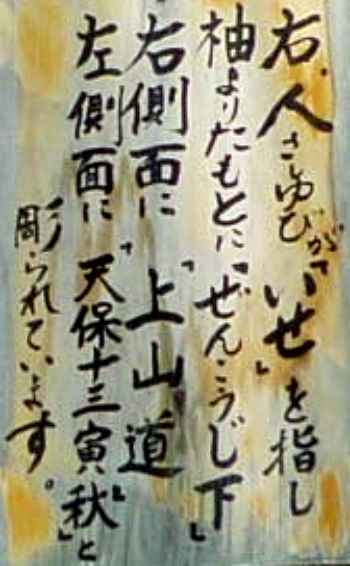 右、人さしゆびが「いせ」を指し
袖よりたもとに「ぜんこうじ下」
右側面に「上山道」
左側面に「天保十三寅秋」と
彫られています。